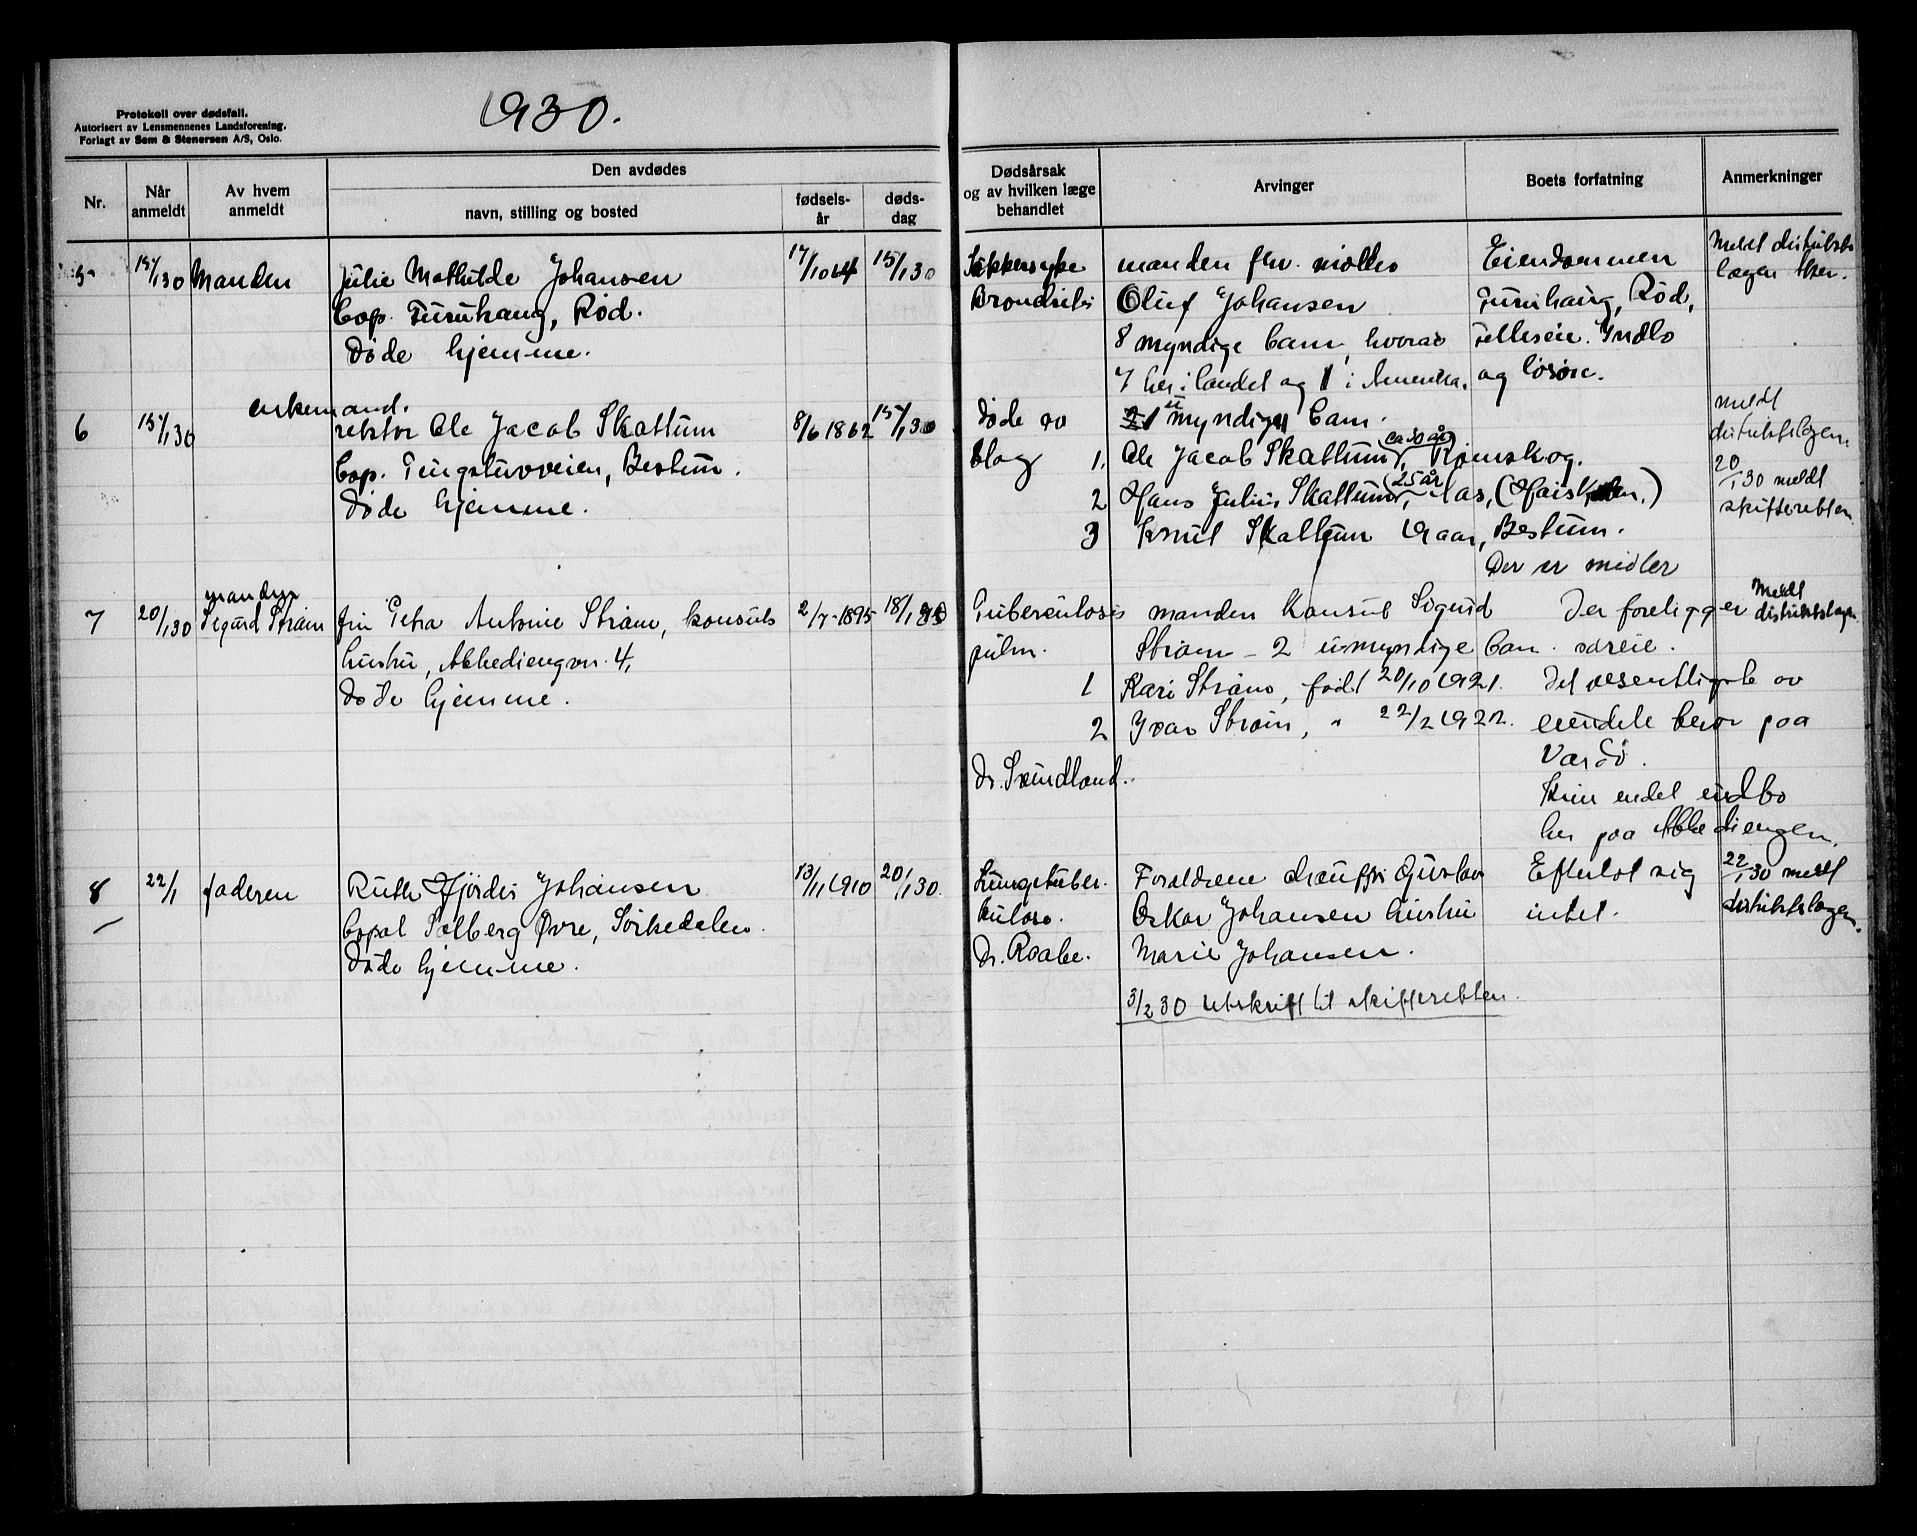 1930.
Protokoll over dødsfall.
Autorisert av Lensmennenes Landsforening.
Forlagt av Sem & Stenersen A/S, Oslo.
Nr.
Når anmeldt
Av hvem anmeldt
Den avdødes
navn, stilling og bosted
fødsels-år
døds-dag
Dødsårsak og av hvilken læge behandlet
Arvinger
Boets forfatning
Anmerkninger
5 15/1 30 Manden Julie Mathilde Johansen 17/10 64 15/1 30
Bop. Furuhaug, Rød.
Døde hjemme.
Sukkersyke
Bronchitis
manden fhv.
Oluf Johansen
8 myndige barn, hvorav
7 her i landet og 1 i Amerika.
Eiendommen
Furuhaug, Rød,
Felleseie. Indbo
og løsøre.
Meldt distrikts
lægen
6 15/1 30 enkemand.
rektor Ole Jacob Skattum 8/6 1862 15/1 30
Bop. Tingstuveien, Bestum.
Døde hjemme.
Døde av
slag
1 umyndig barn.
1. Ole Jacob Skattum, (ca 30 år) Rømskog.
2 Hans Julius Skattum, (25 år)
3 Knut Skattum 19 aar, Bestum.
Der er midler
meldt
distriktslægen
20/1 30 meldt
skifteretten
7 20/1 30 manden
Sigurd Strøm fru Petra Antonie Strøm, konsuls 2/7-1895 18/1 30
hustru, Abbediengvn. 4,
Døde hjemme.
Tuberculosis
pulm.
Dr. Svindland.
manden Konsul Sigurd
Strøm - 2 umyndige barn.
1 Kari Strøm, født 20/10 1921.
2 Ivar Strøm, " 22/2 1922.
Der foreligger
særeie.
Det vesentligste av
eiendele beror paa
Vardø.
Kun endel indbo
her paa Abbediengen.
Meldt
distriktslægen
8 22/1 faderen Ruth Hjördis Johansen 13/11 1910 20/1 30.
Bopæl Solberg Øvre, Sörkedalen.
Døde hjemme.
Lungetuber-
kulose.
Dr. Raabe.
Forældrene chauffør Gustav
Oskar Johansen hustru
Marie Johansen.
3/2 30 utskrift til skifteretten.
Efterlot sig
intet.
22/1 30 meldt
distriktslægen.